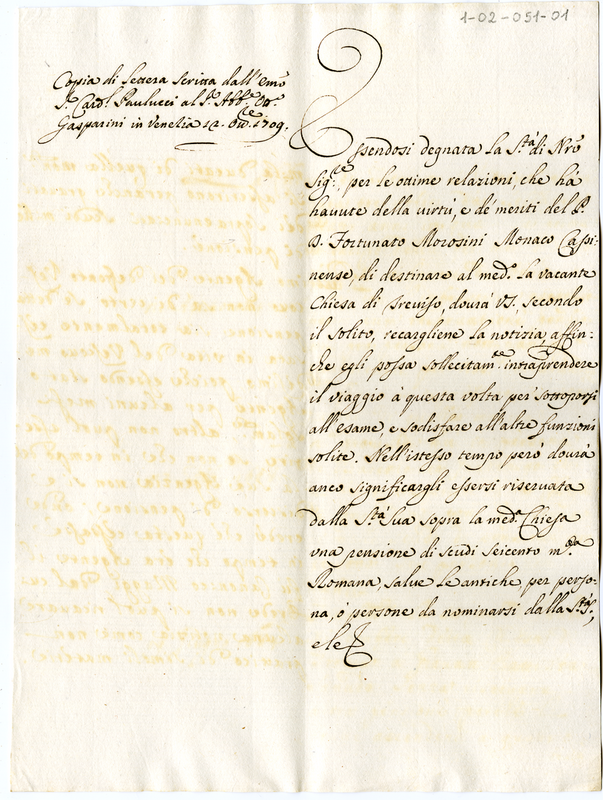 1-02-051-01
Copia di Lettera scritta dall'Emo
S. Card.l Paulucci al S.r Abb.e
Gasparini in Venezia 12. 1709.
Essendosi degnata la S.tà di Nrō
Sig.re, per le ottime relazioni, che hà
havute della virtù, e de' meriti del P.
D. Fortunato Morosini Monaco Cassi-
nense, di destinare al med.o la vacante
Chiesa di Treviso, dourà VS., secondo
il solito, recargliene la notizia, affin-
che egli possa sollecitam.te intraprendere
il viaggio à questa volta per sottoporsi
all'esame, e sodisfare all'altre funzioni
solite. Nell'istesso tempo però dourà
anco significargli essersi riseruata
dalla S.tà Sua sopra la med.a Chiesa
vna pensione di scudi seicento m.ta
Romana, salue le antiche per perso-
na, ò persone da nominarsi dalla S.tà S.,
e le